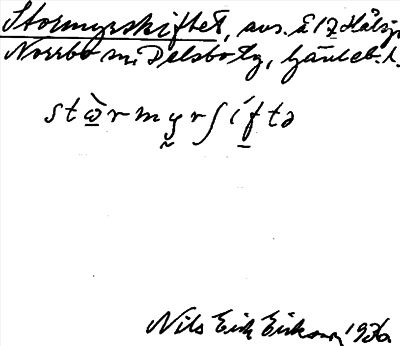 Stormyrskiftet, avs. å 17 Hälsj
Norrbo sn, Delsbo tg, Gävleb. l.
stὼ̲rmy̰rʃíf̲tə
Nils Erik Eriksson 1936